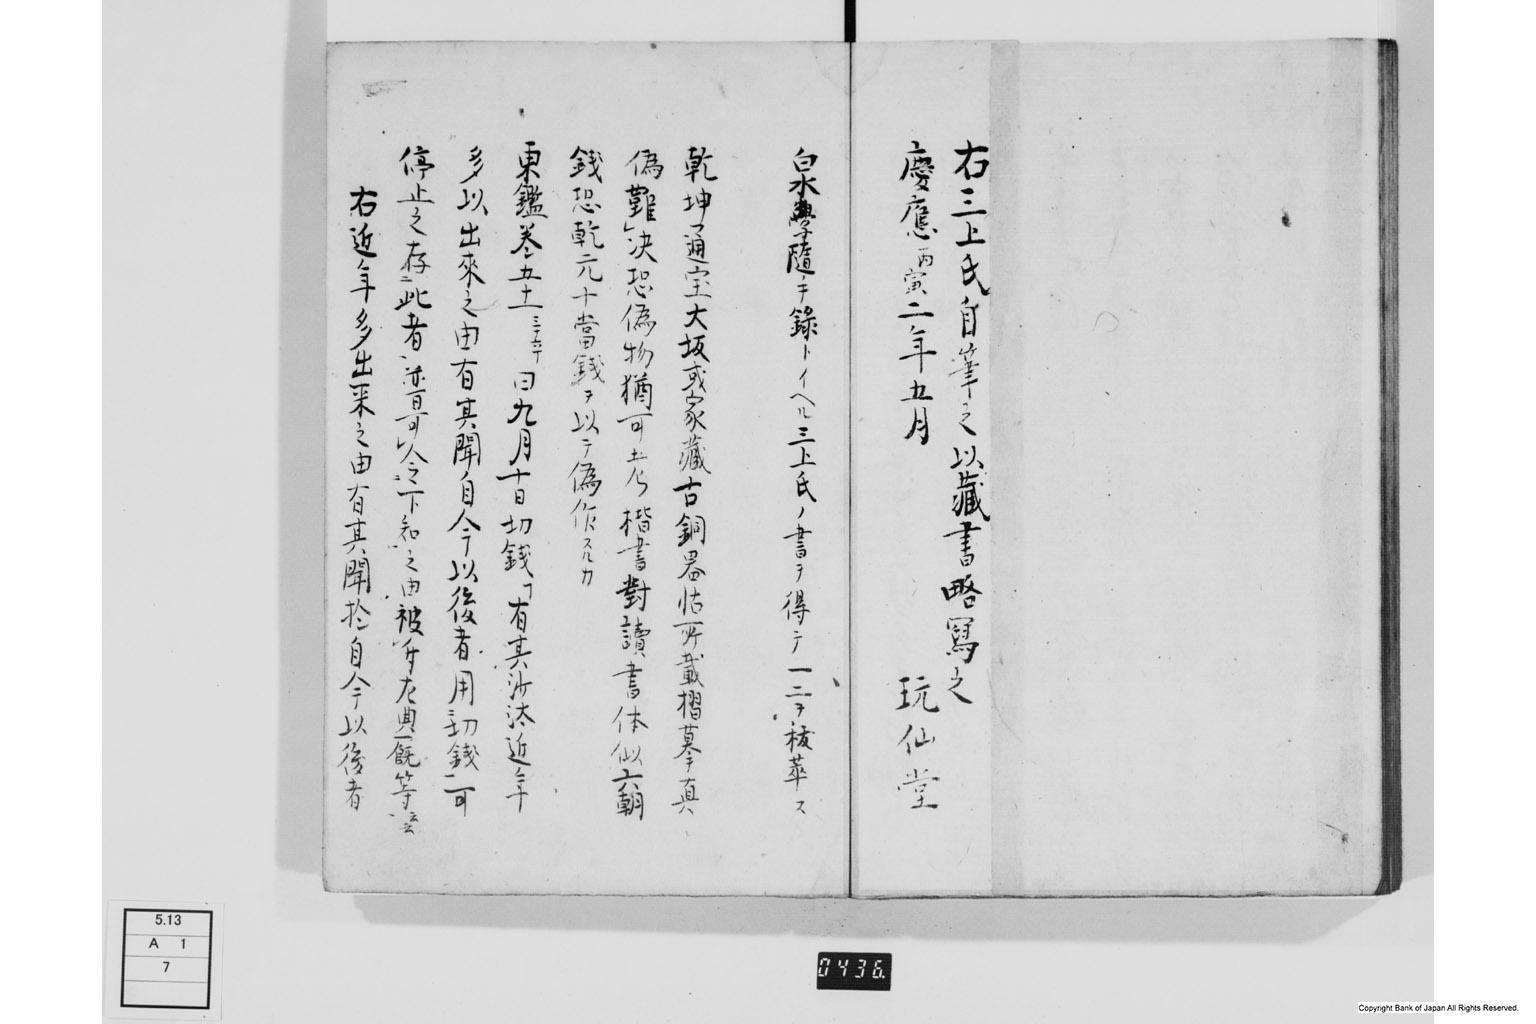 右三上氏自筆之以蔵書略寫之
慶應丙寅二年五月
玩仙堂
白水學隨手錄トイヘル三上氏ノ書ヲ得テ一二ヲ抜萃ス
乾坤通宝大坂或家藏古銅器帖所載摺摹真
偽難决恐偽物猶可考楷書對讀書体似六朝
錢恐乾元十當錢ヲ以テ偽作スルカ
東鑑巻五十一 曰九月十日切錢 有其沙汰近年
多以出來之由有其聞自今以後者用切錢可
停止之存此者 可令下知之由被 左典厩等云云
右近年多出来之由有其聞於自今以後者
5.13
A 1
7
0436
Copyright Bank of Japan All Rights Reserved.